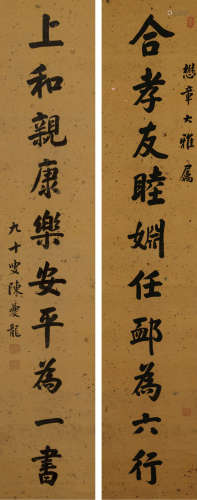 懋章大雅屬
合孝友睦婣任卹為六行
上和親康樂安平為一書
九十叟陳夔龍